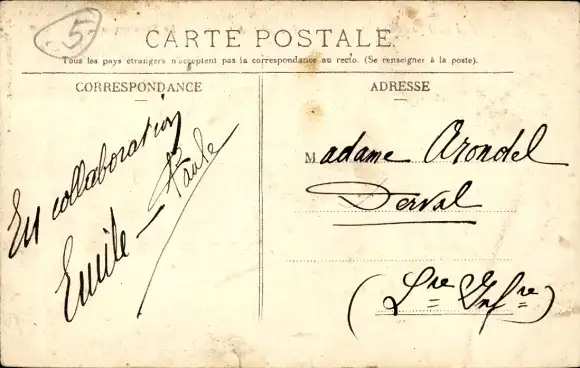 5
CARTE POSTALE
Tous les pays étrangers n'acceptent pas la correspondance au recto. (Se renseigner à la poste).
CORRESPONDANCE
ADRESSE
En collaboration
Emile - Paule
Madame Arondel
Derval
(Lre Infre)